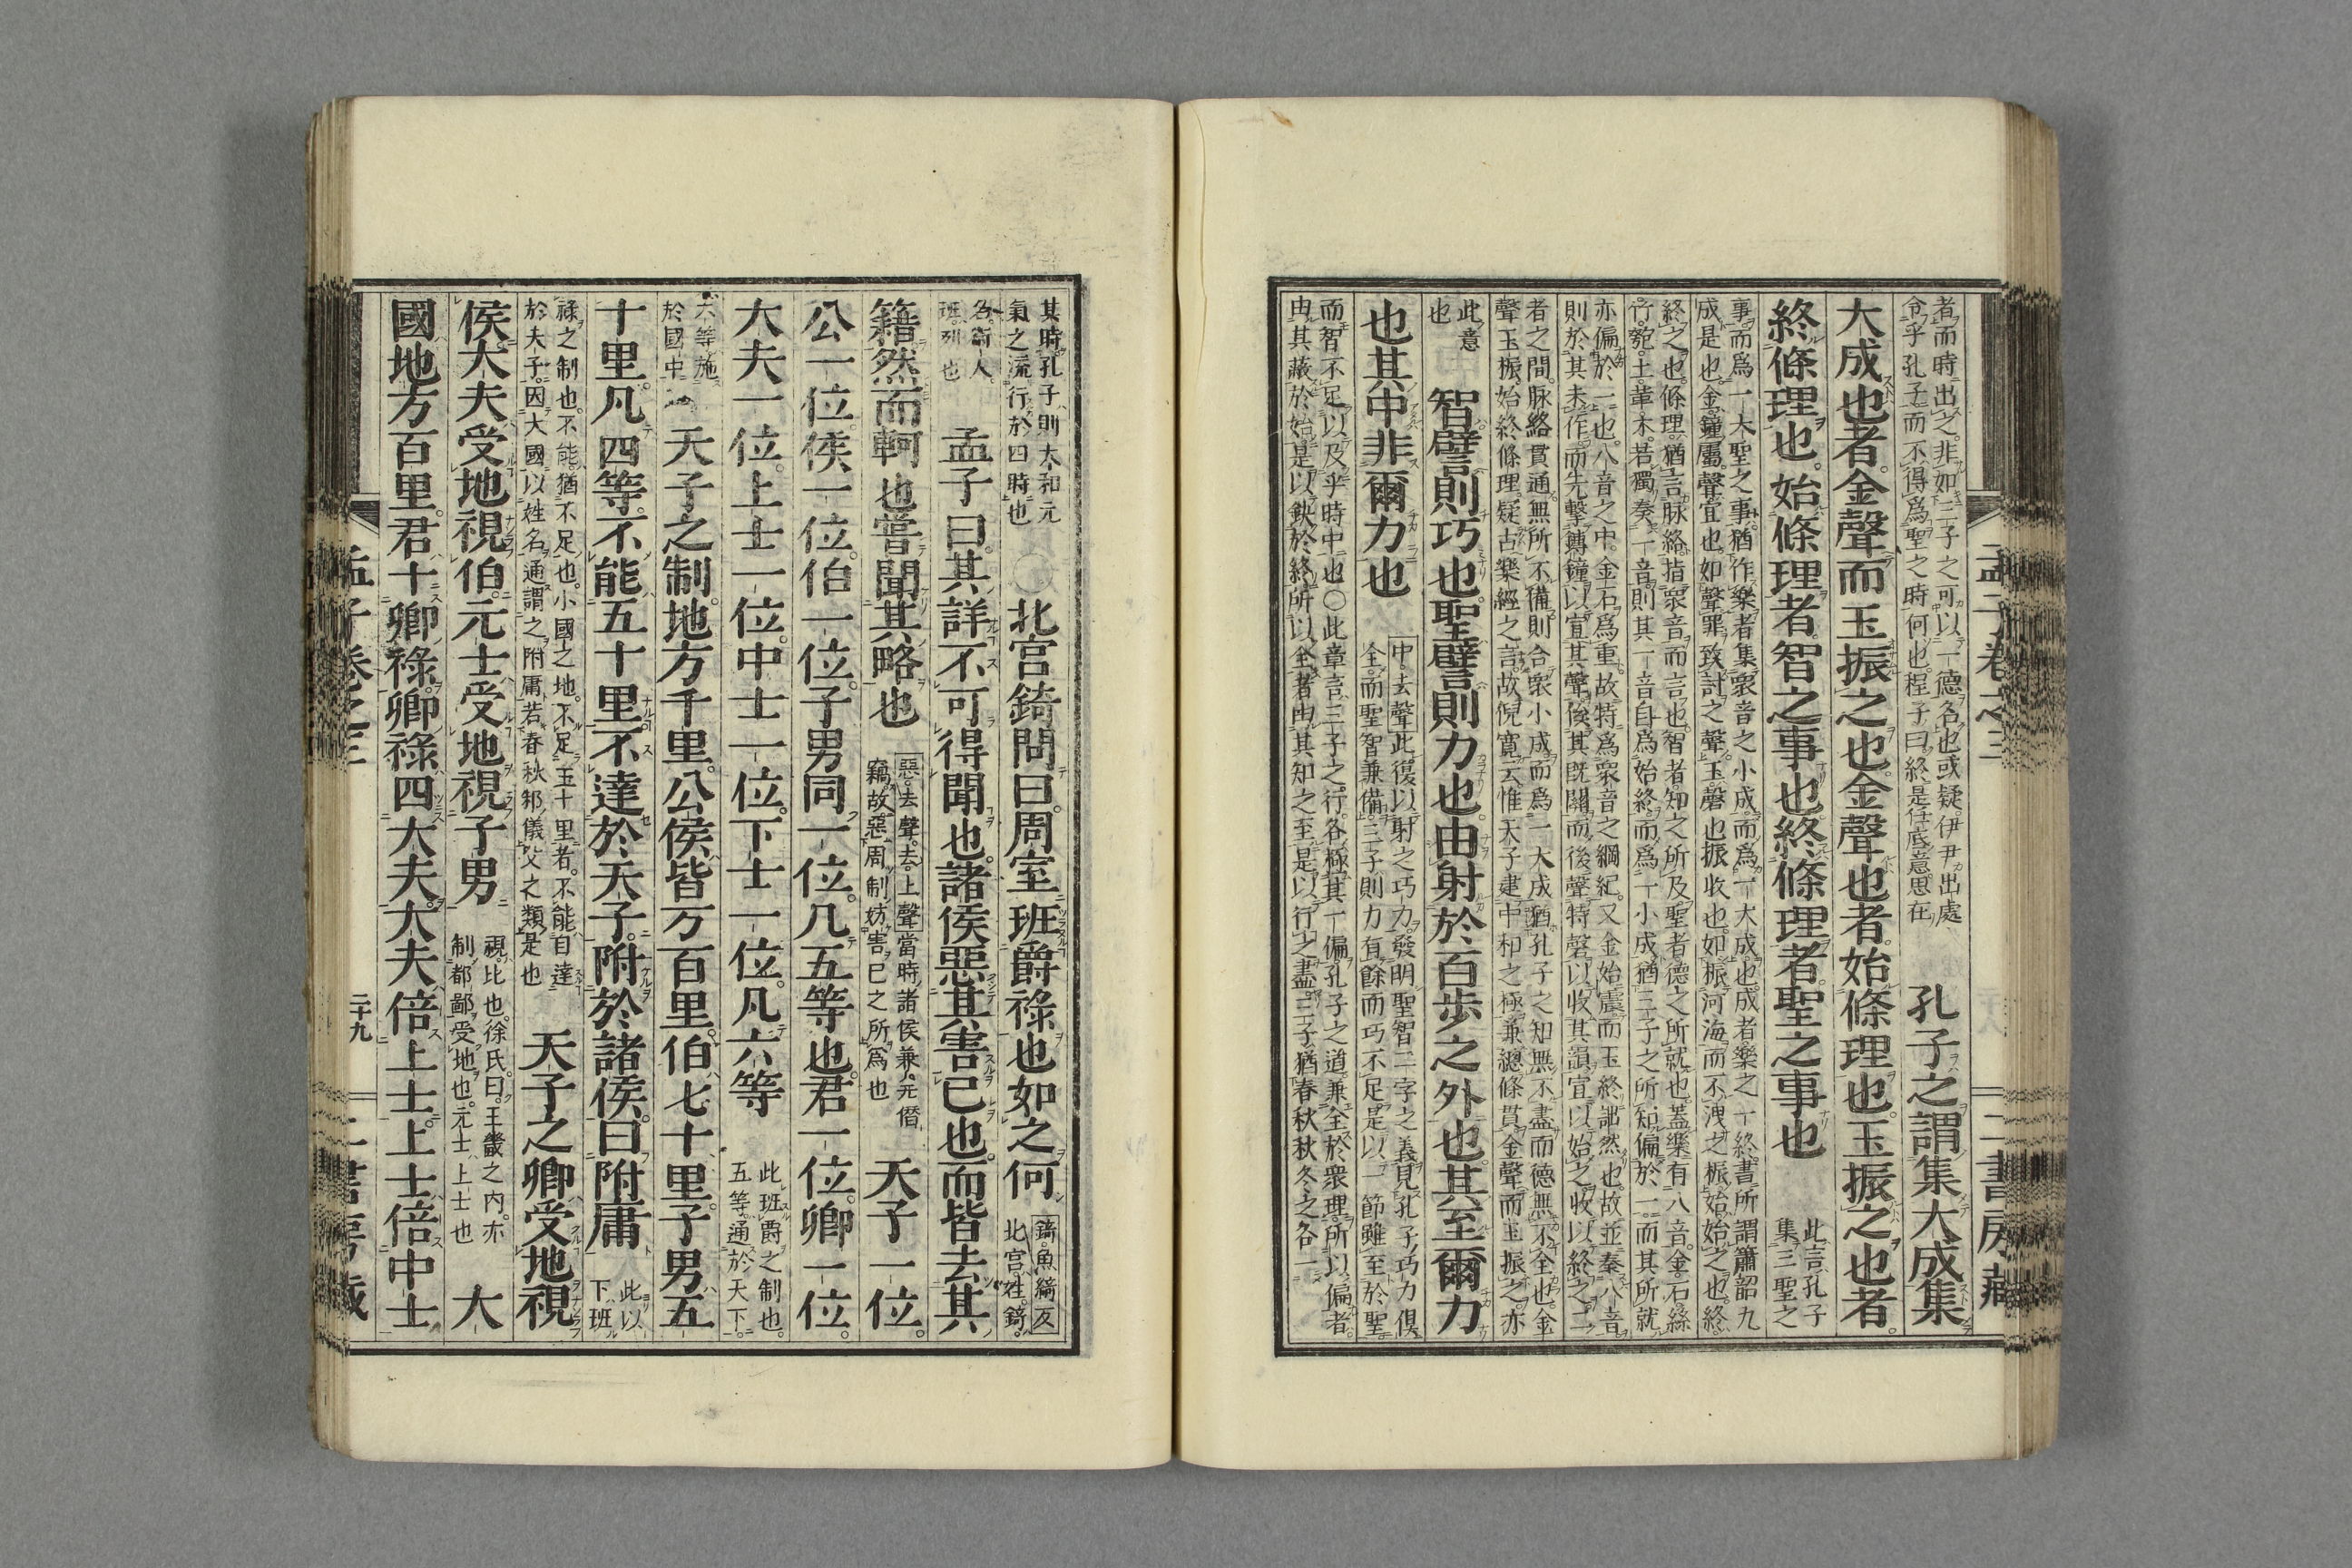 孟子卷之三
二書房藏
者而時出之非如三子之可以一德名也或疑伊尹出處
合乎孔子而不得爲聖之時何也程子曰終是任底意思在
孔子之謂集大成集
大成也者金聲而玉振之也金聲也者始條理也玉振之也者
終條理也始條理者智之事也終條理者聖之事也
此言孔子
集三聖之
事而爲一大聖之事猶作樂者集衆音之小成而爲一大成也成者樂之一終書所謂簫韶九
成是也金鐘屬聲宣也如聲罪致討之聲玉磬也振收也如振河海而不洩之振始始之也終
終之也條理猶言脉絡指衆音而言也智者知之所及聖者德之所就也蓋樂有八音金石絲
竹匏土革木若獨奏一音則其一音自爲始終而爲一小成猶三子之所知偏於一而其所就
亦偏於一也八音之中金石爲重故特爲衆音之綱紀又金始震而玉終詘然也故並奏八音
則於其未作而先擊鎛鐘以宣其聲俟其既闋而後擊特磬以收其韻宣以始之收以終之二
者之間脉絡貫通無所不備則合衆小成而爲一大成猶孔子之知無不盡而德無不全也金
聲玉振始終條理疑古樂經之言故倪寬云惟天子建中和之極兼總條貫金聲而玉振之亦
此意
也
智譬則巧也聖譬則力也由射於百步之外也其至爾力
也其中非爾力也
中去聲此復以射之巧力發明聖智二字之義見孔子巧力俱
全而聖智兼備三子則力有餘而巧不足是以一節雖至於聖
而智不足以及乎時中也○此章言三子之行各極其一偏孔子之道兼全於衆理所以偏者
由其蔽於始是以缺於終所以全者由其知之至是以行之盡三子猶春秋秋冬之各一
其時孔子則大和元
氣之流行於四時也
○北宮錡問曰周室班爵祿也如之何
錡魚綺反
北宮姓錡
名衞人
班列也
孟子曰其詳不可得聞也諸侯惡其害已也而皆去其
籍然而軻也嘗聞其略也
惡去聲去上聲當時諸侯兼幷僭
竊故惡周制妨害已之所爲也
天子一位
公一位侯一位伯一位子男同一位凡五等也君一位卿一位
大夫一位上士一位中士一位下士一位凡六等
此班爵之制也
五等通於天下
六等施
於國中
天子之制地方千里公侯皆方百里伯七十里子男五
十里凡四等不能五十里不達於天子附於諸侯曰附庸
此以
下班
祿之制也不能猶不足也小國之地不足五十里者不能自達
於天子因大國以姓名通謂之附庸若春秋邾儀父之類是也
天子之卿受地視
侯大夫受地視伯元士受地視子男
視比也徐氏曰王畿之内亦
制都鄙受地也元士上士也
大
國地方百里君十卿祿卿祿四大夫大夫倍上士上士倍中士
孟子卷之三
二十九
二書房藏